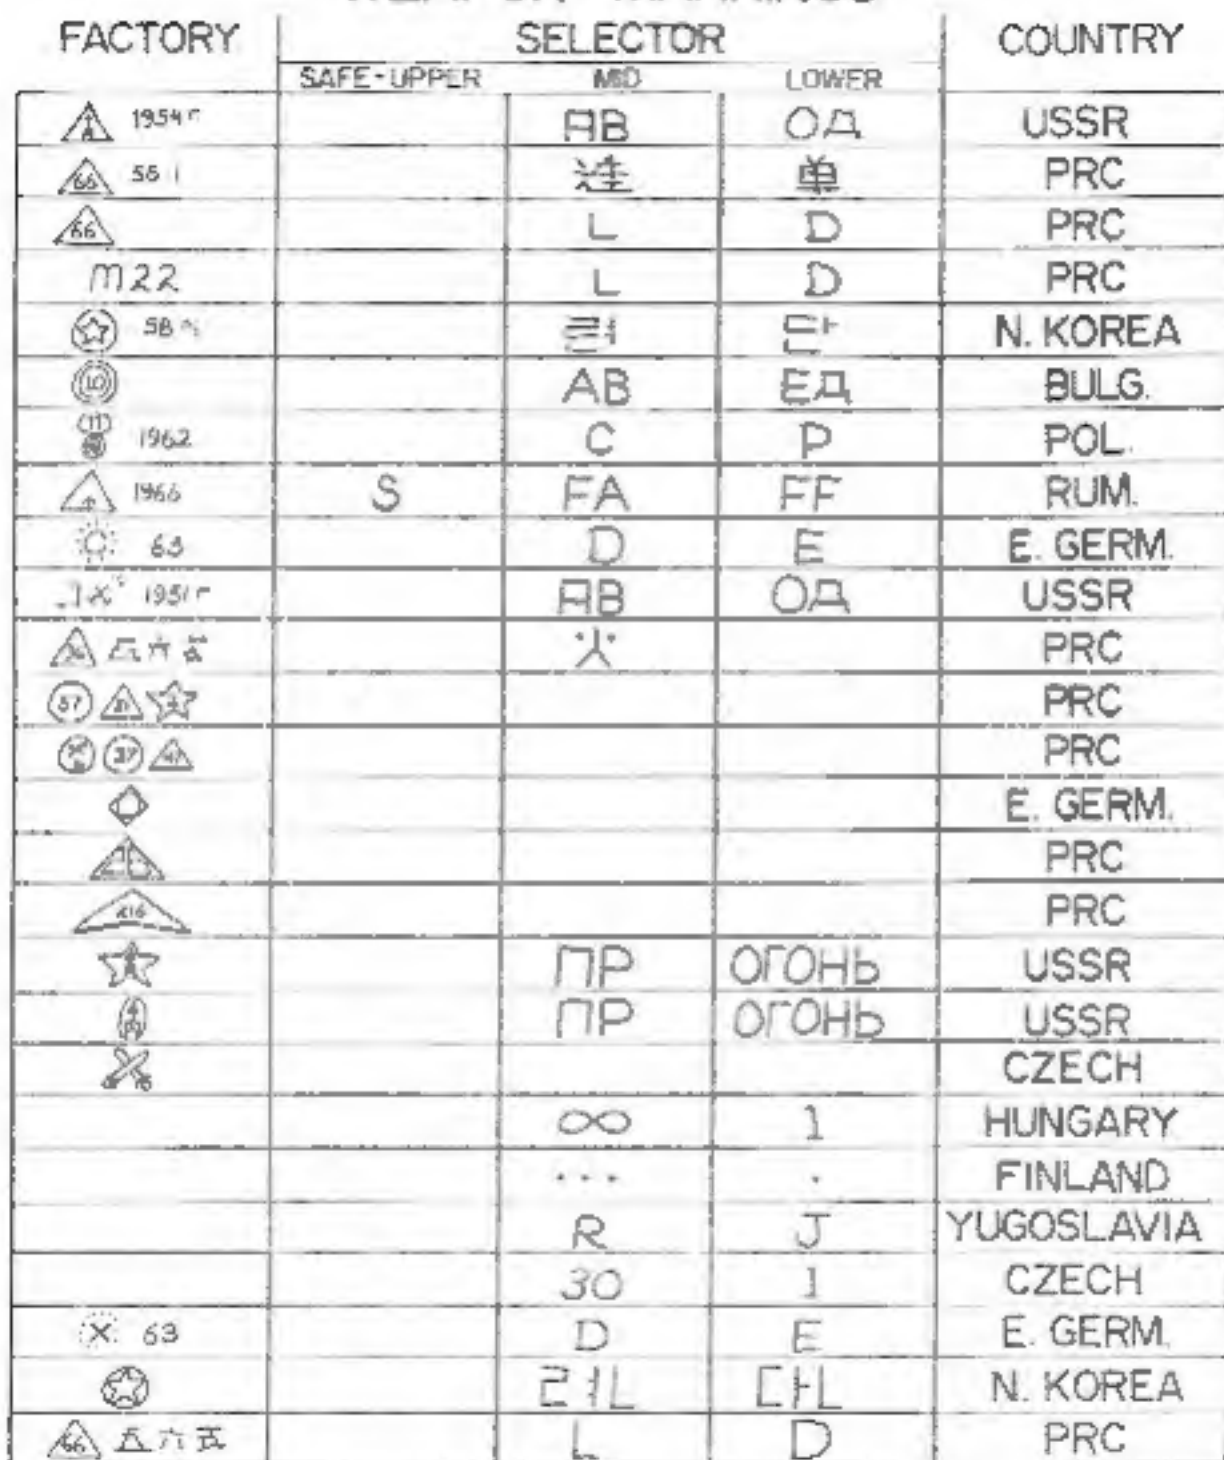 FACTORY SELECTOR COUNTRY
SAFE-UPPER MID LOWER
1954 г АВ ОД USSR
66 56 1 单 PRC
66 L D PRC
M22 L D PRC
58 련 단 N. KOREA
10 АВ ЕД BULG.
11 1962 C P POL.
1966 S FA FF RUM.
63 D E E. GERM.
1951 г АВ ОД USSR
五六 PRC
57 PRC
37 PRC
E. GERM.
PRC
PRC
ПР ОГОНЬ USSR
ПР ОГОНЬ USSR
CZECH
∞ 1 HUNGARY
... . FINLAND
R J YUGOSLAVIA
30 1 CZECH
63 D E E. GERM.
련 단 N. KOREA
66 五六式 L D PRC